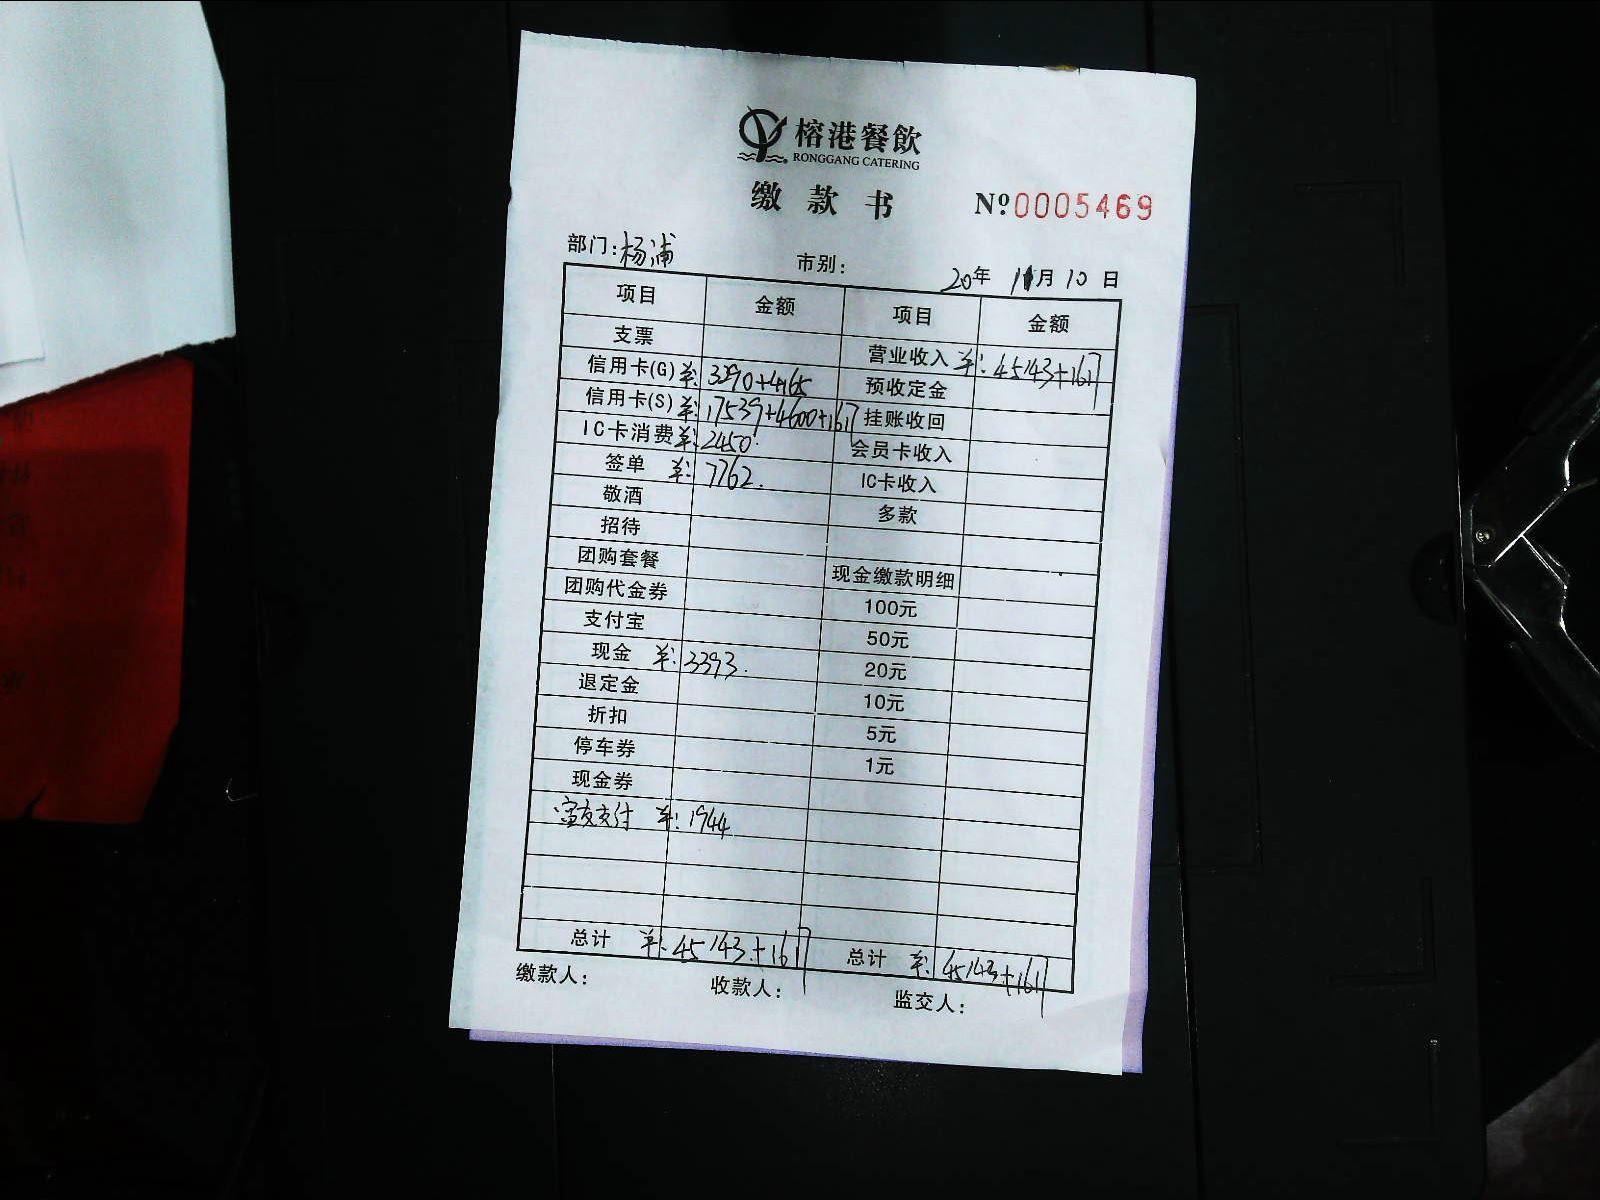 榕港餐飲
RONGGANG CATERING
缴款书 №0005469
部门:杨浦 市别: 20年 11月 10日
项目 金额 项目 金额
支票 营业收入 ¥: 45143+1617
信用卡(G) ¥: 3290+4165 预收定金
信用卡(S) ¥: 17539+4600+1617 挂账收回
IC卡消费 ¥: 2450. 会员卡收入
签单 ¥: 7762. IC卡收入
敬酒 多款
招待
团购套餐 现金缴款明细
团购代金券 100元
支付宝 50元
现金 ¥: 3393. 20元
退定金 10元
折扣 5元
停车券 1元
现金券
富友支付 ¥: 1944
总计 ¥: 45143+1617 总计 ¥: 45143+1617
缴款人: 收款人: 监交人: